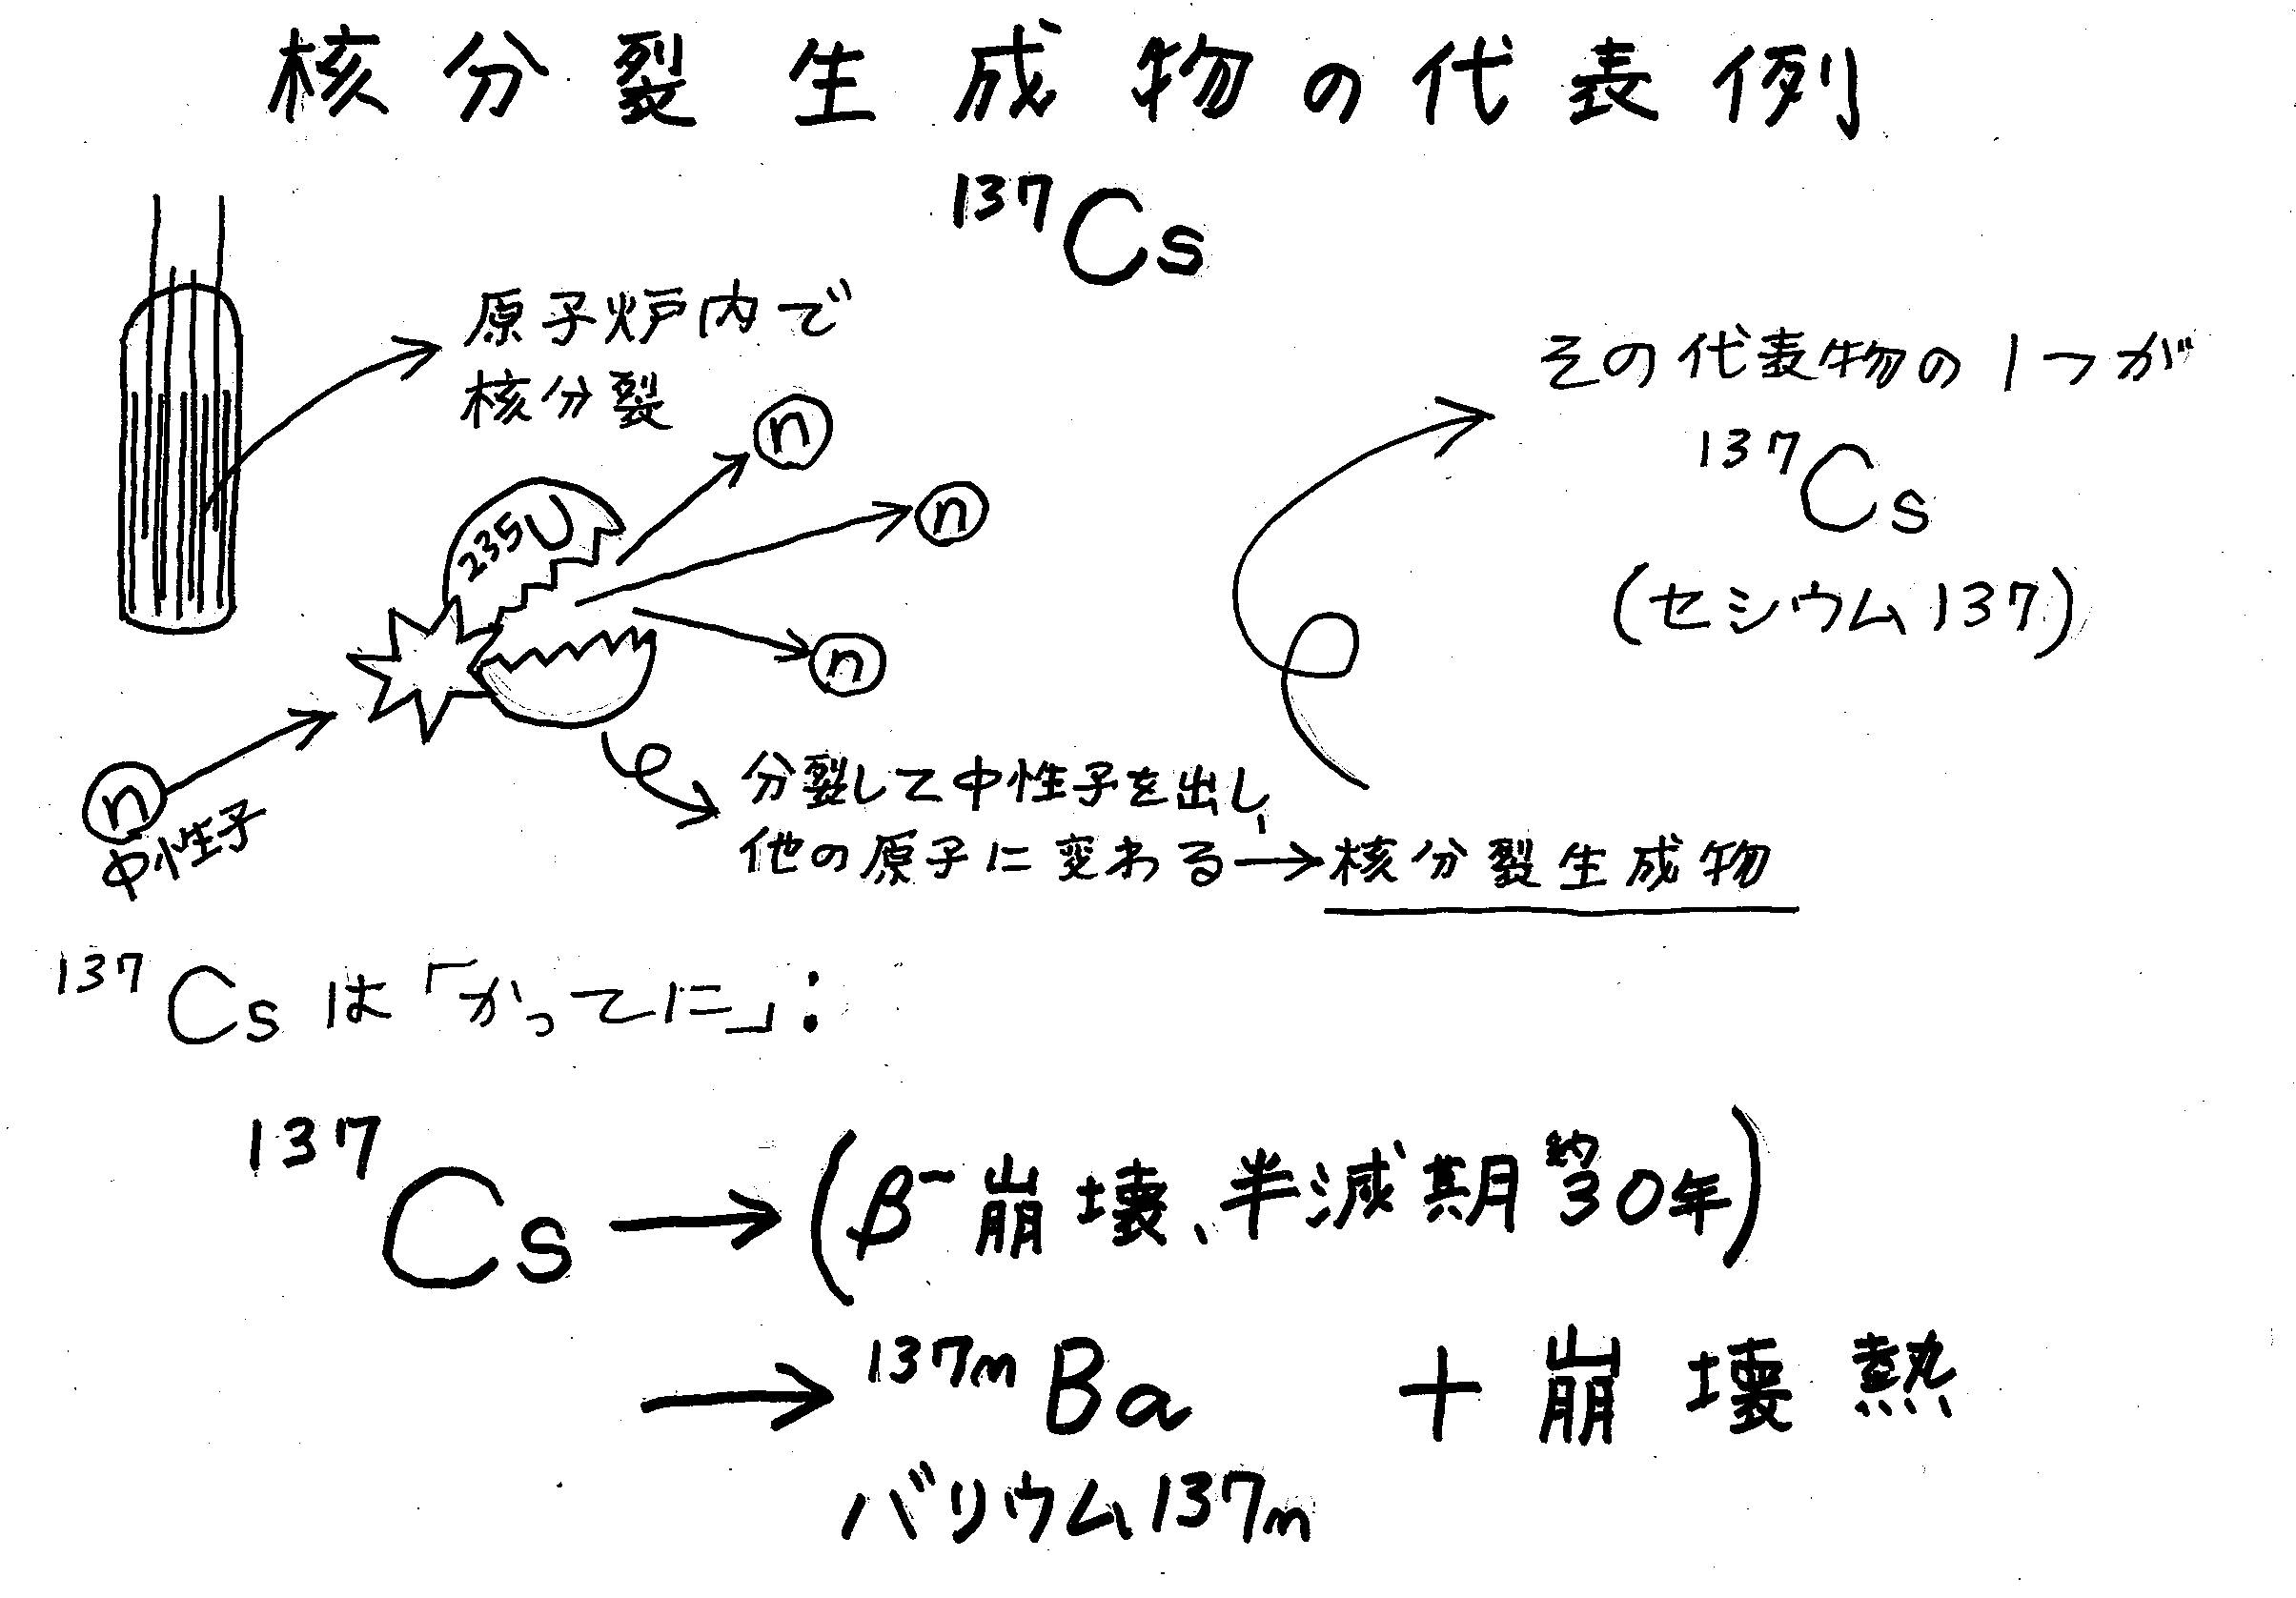 核分裂生成物の代表例
¹³⁷Cs
原子炉内で
核分裂
n
n
n
²³⁵U
n
中性子
分裂して中性子を出し、
他の原子に変わる→核分裂生成物
その代表物の1つが
¹³⁷Cs
(セシウム137)
¹³⁷Csは「かってに」:
¹³⁷Cs→(β⁻崩壊、半減期約30年)
→¹³⁷ᵐBa + 崩壊熱
バリウム137m